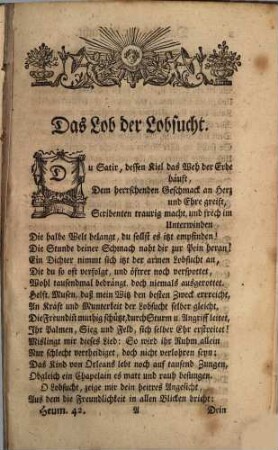 Das Lob der Lobsucht.
Du Satir, dessen Kiel das Weh der Erde
häuft,
Dem herrschenden Geschmack an Herz
und Ehre greift,
Scribenten traurig macht, und frech im
Unterwinden
Die halbe Welt belangt, du sollst es itzt empfinden!
Die Stunde deiner Schmach naht dir zur Pein heran!
Ein Dichter nimmt sich itzt der armen Lobsucht an,
Die du so oft verfolgt, und öftrer noch verspottet,
Wohl tausendmal bedrängt, doch niemals ausgerottet.
Helft, Musen, daß mein Witz den besten Zweck erreiche,
An Kraft und Munterkeit der Lobsucht selber gleiche,
Die Freundinn muthig schütze, durch Sturm u. Angriff leitet,
Ihr Palmen, Sieg und Feld, sich selber Ehr erstreitet!
Mislingt mir dieses Lied: So wird ihr Ruhm allein
Nur schlecht vertheidiget, doch nicht verlohren seyn;
Das Kind von Orleans lebt noch auf tausend Zungen,
Obgleich ein Chapelain es matt und rauh besungen.
O Lobsucht, zeige mir dein heitres Angesicht,
Aus dem die Freundlichkeit in allen Blicken bricht:
Heum. 42. A Dein